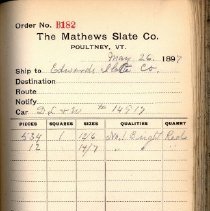 Order No. B182
The Mathews Slate Co.
POULTNEY, VT.
May 26 1897
Ship to Edwards Slate Co.
Destination
Route
Notify
Car D L & W 14919
PIECES SQUARES SIZES QUALITIES QUANTITY MARKET
534 1 12/6 No. 1 Bright Red
12 14/7 " "